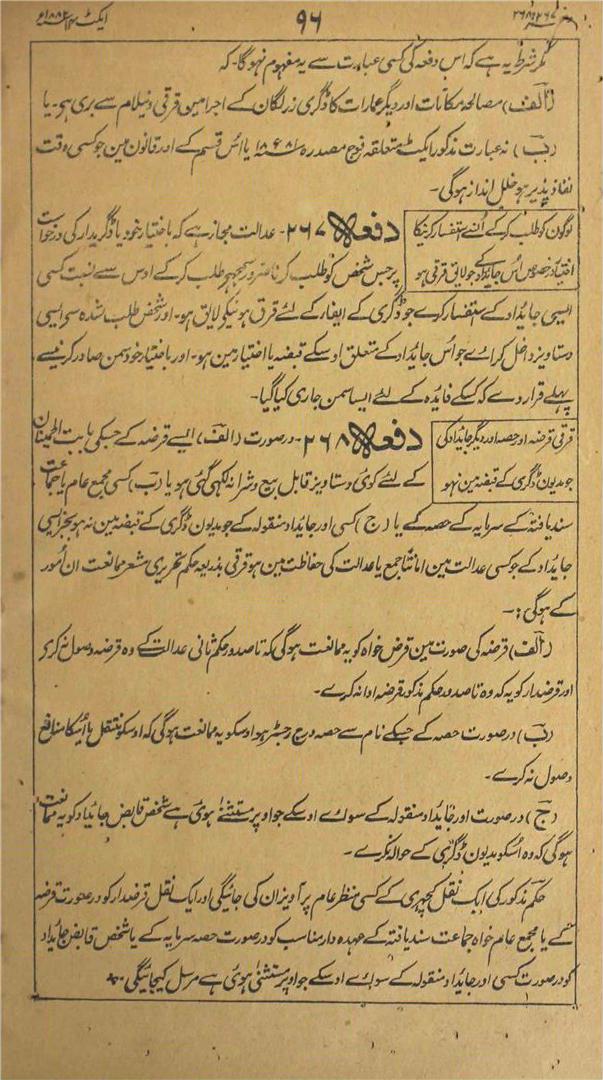 ایکٹ ۱۴ سنہ ۱۸۸۲ء
۹۶
دفعہ ۲۶۷ و ۲۶۸
مگر شرط یہ ہے کہ اس دفعہ کی کسی عبارت سے یہ مفہوم نہوگا۔ کہ
(الف) مصالحہ مکانات اور دیگر عمارات کا ڈگری زر لگان کے اجرا مین قرقی و نیلام سے بری ہی۔ یا
(ب) نہ عبارت مذکور ایکٹ متعلقہ فوج مصدرہ سنہ ۱۸۸۱ء یا اس قسم کے اور قانون مین جو کسی وقت
نفاذ پذیر ہو خلل انداز ہوگی۔
لوگون کو طلب کرکے اُنسے استفسار کرنیکا
اختیار درخصوص اُس جایداد کے جو لایق قرقی ہو
دفعہ ۲۶۷۔ عدالت مجاز ہے کہ باختیار خود یا ڈگریدار کی درخواست
پر جس شخص کو طلب کرنا ضرور سمجھے طلب کرکے اوس سے نسبت کسی
ایسی جائداد کے استفسار کرے جو ڈگری کے ایفاء کے لئے قرق ہونیکو لایق ہو۔ اور شخص طلب شدہ سی ایسی
دستاویز داخل کرائے جو اُس جایداد کے متعلق اوسکے قبضہ یا اختیار مین ہو۔ اور باختیار خود سمن صادر کرنیسے
پہلے قرار دے کہ کسکے فایدہ کے لئے ایسا سمن جاری کیا گیا۔
قرقی قرضہ اور حصہ اور دیگر جایداد کی
جو مدیون ڈگری کے قبضہ مین نہو
دفعہ ۲۶۸۔ درصورت (الف) ایسے قرضہ کے جسکی بابت اطمینان
کے لئے کوئی دستاویز قابل بیع و شرا نہ لکھی گئی ہو یا (ب) کسی مجمع عام یا جماعت
سند یافتہ کے سرمایہ کے حصہ کے یا (ج) کسی اور جایداد منقولہ کے جو مدیون ڈگری کے قبضہ مین نہ ہو بجز ایسی
جایداد کے جو کسی عدالت مین امانتاً جمع یا عدالت کی حفاظت مین ہو قرقی بذریعہ حکم تحریری مشعر ممانعت ان اُمور
کے ہوگی :۔
(الف) قرضہ کی صورت مین قرض خواہ کو یہ ممانعت ہوگی کہ تا صدور حکم ثانی عدالت کے وہ قرضہ وصول نہ کری
اور قرضدار کو یہ کہ وہ تا صدور حکم مذکور قرضہ ادا نہ کرے۔
(ب) درصورت حصہ کے جسکے نام سے حصہ درج رجسٹر ہو اوسکو یہ ممانعت ہوگی کہ اوسکو منتقل یا اُسکا منافع
وصول نہ کرے۔
(ج) درصورت اور جایداد منقولہ کے سوائے اوسکے جو اوپر مستثنےٰ ہوئی ہے شخص قابض جایداد کو یہ ممانعت
ہوگی کہ وہ اُسکو مدیون ڈگری کے حوالہ نکرے۔
حکم مذکور کی ایک نقل کچہری کے کسی منظر عام پر آویزان کی جائیگی اور ایک نقل قرضدار کو درصورت قرضہ
کے یا مجمع عام خواہ جماعت سند یافتہ کے عہدہ دار مناسب کو درصورت حصہ سرمایہ کے یا شخص قابض جایداد
کو درصورت کسی اور جایداد منقولہ کے سوائے اوسکے جو اوپر مستثنیٰ ہوئی ہے مرسل کیجائیگی۔